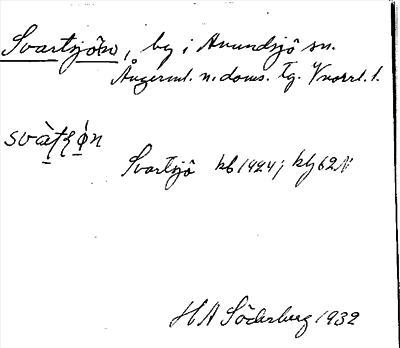 Svartsjön, by i Anundsjö sn.
Ångerml. n. doms. tg. Vnorrl. l.
Svartsjö kb 1924; kbj 62 N
H A Söderberg 1932